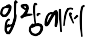 입장에서